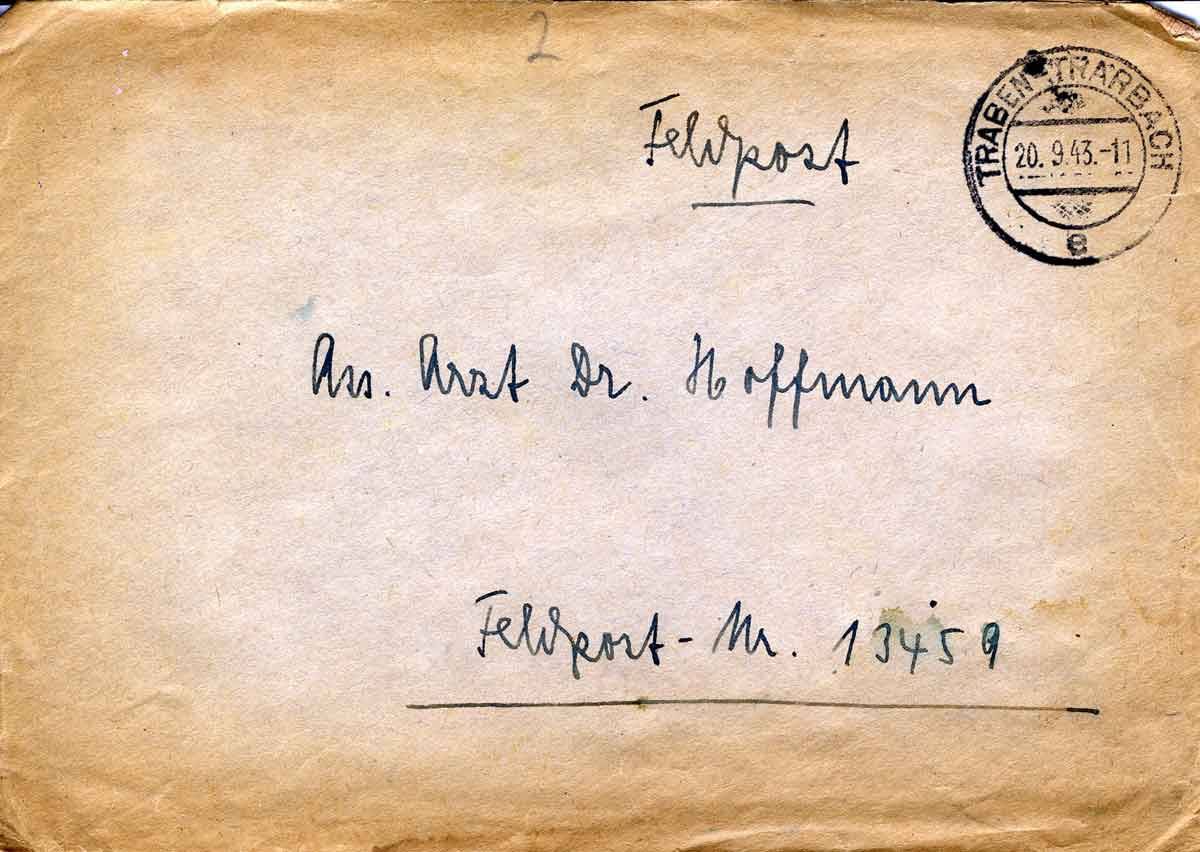 2
Feldpost
TRABEN-TRARBACH
20. 9.43.-11
e
Ass. Arzt Dr. Hoffmann
Feldpost-Nr. 13459